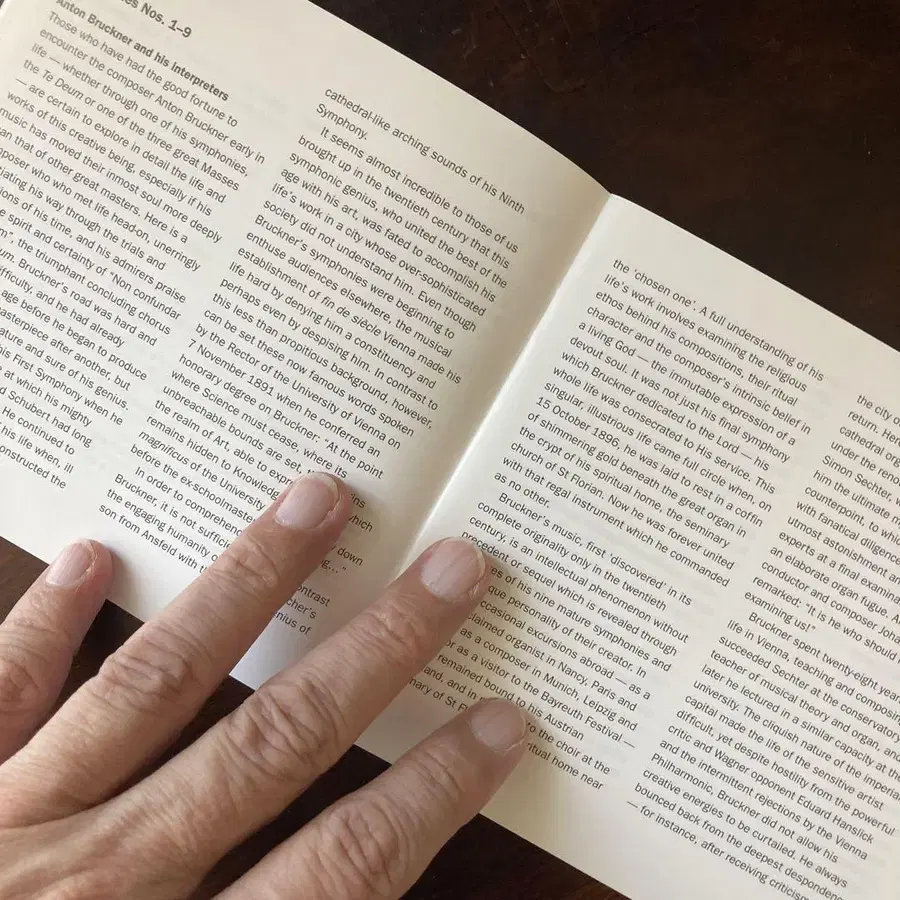 es Nos. 1–9
Anton Bruckner and his interpreters
Those who have had the good fortune to
encounter the composer Anton Bruckner early in
life — whether through one of his symphonies,
the Te Deum or one of the three great Masses
— are certain to explore in detail the life and
works of this creative being, especially if his
music has moved their inmost soul more deeply
an that of other great masters. Here is a
poser who met life head-on, unerringly
tiating his way through the trials and
ions of his time, and his admirers praise
e spirit and certainty of "Non confundar
m", the triumphant concluding chorus
um. Bruckner's road was hard and
fficulty, and he had already
age before he began to produce
masterpiece after another, but
ature and sure of his genius.
his First Symphony when he
e at which his mighty
Schubert had long
He continued to
his life when, ill
onstructed the
cathedral-like arching sounds of his Ninth
Symphony.
It seems almost incredible to those of us
brought up in the twentieth century that this
symphonic genius, who united the best of the
age with his art, was fated to accomplish his
life's work in a city whose over-sophisticated
society did not understand him. Even though
Bruckner's symphonies were beginning to
enthuse audiences elsewhere, the musical
establishment of fin de siècle Vienna made his
life hard by denying him a constituency and
perhaps even by despising him. In contrast to
this less than propitious background, however,
can be set these now famous words spoken
by the Rector of the University of Vienna on
7 November 1891 when he conferred an
honorary degree on Bruckner: "At the point
where Science must cease, where its
unbreachable bounds are set,
the realm of Art, able to exp
remains hidden to Knowledg which
magnificus of the University
before the ex-schoolmaste down
In order to comprehen ng… "
Bruckner, it is not suffic
the engaging humanity o contrast
son from Ansfeld with t cher's
nius of
the 'chosen one'. A full understanding of his
life's work involves examining the religious
ethos behind his compositions, their ritual
character and the composer's intrinsic belief in
a living God — the immutable expression of a
devout soul. It was not just his final symphony
which Bruckner dedicated to the Lord — his
whole life was consecrated to His service. This
singular, illustrious life came full circle when, on
15 October 1896, he was laid to rest in a coffin
of shimmering gold beneath the great organ in
the crypt of his spiritual home, the seminary
church of St Florian. Now he was forever united
with that regal instrument which he commanded
as no other.
Bruckner's music, first 'discovered' in its
complete originality only in the twentieth
century, is an intellectual phenomenon without
precedent or sequel which is revealed through
es of his nine mature symphonies and
que personality of their creator. In
ccasional excursions abroad — as a
claimed organist in Nancy, Paris and
as a composer in Munich, Leipzig and
or as a visitor to the Bayreuth Festival —
remained bound to his Austrian
and, and in to the choir at the
nary of St F ritual home near
the city o
return. Her
cathedral org
under the reno
Simon Sechter, w
him the ultimate m
counterpoint, to whi
with fanatical diligenc
utmost astonishment an
experts at a final examin
an elaborate organ fugue, h
conductor and composer Joha
remarked: "It is he who should b
examining us!"
Bruckner spent twenty-eight year
life in Vienna, teaching and composing
succeeded Sechter at the conservatory
teacher of musical theory and organ, an
later he lectured in a similar capacity at the
university. The cliquish nature of the imperia
capital made the life of the sensitive artist
difficult, yet despite hostility from the powerful
critic and Wagner opponent Eduard Hanslick
and the intermittent rejections by the Vienna
Philharmonic, Bruckner did not allow his
creative energies to be curtailed. He always
bounced back from the deepest despondenc
— for instance, after receiving criticism